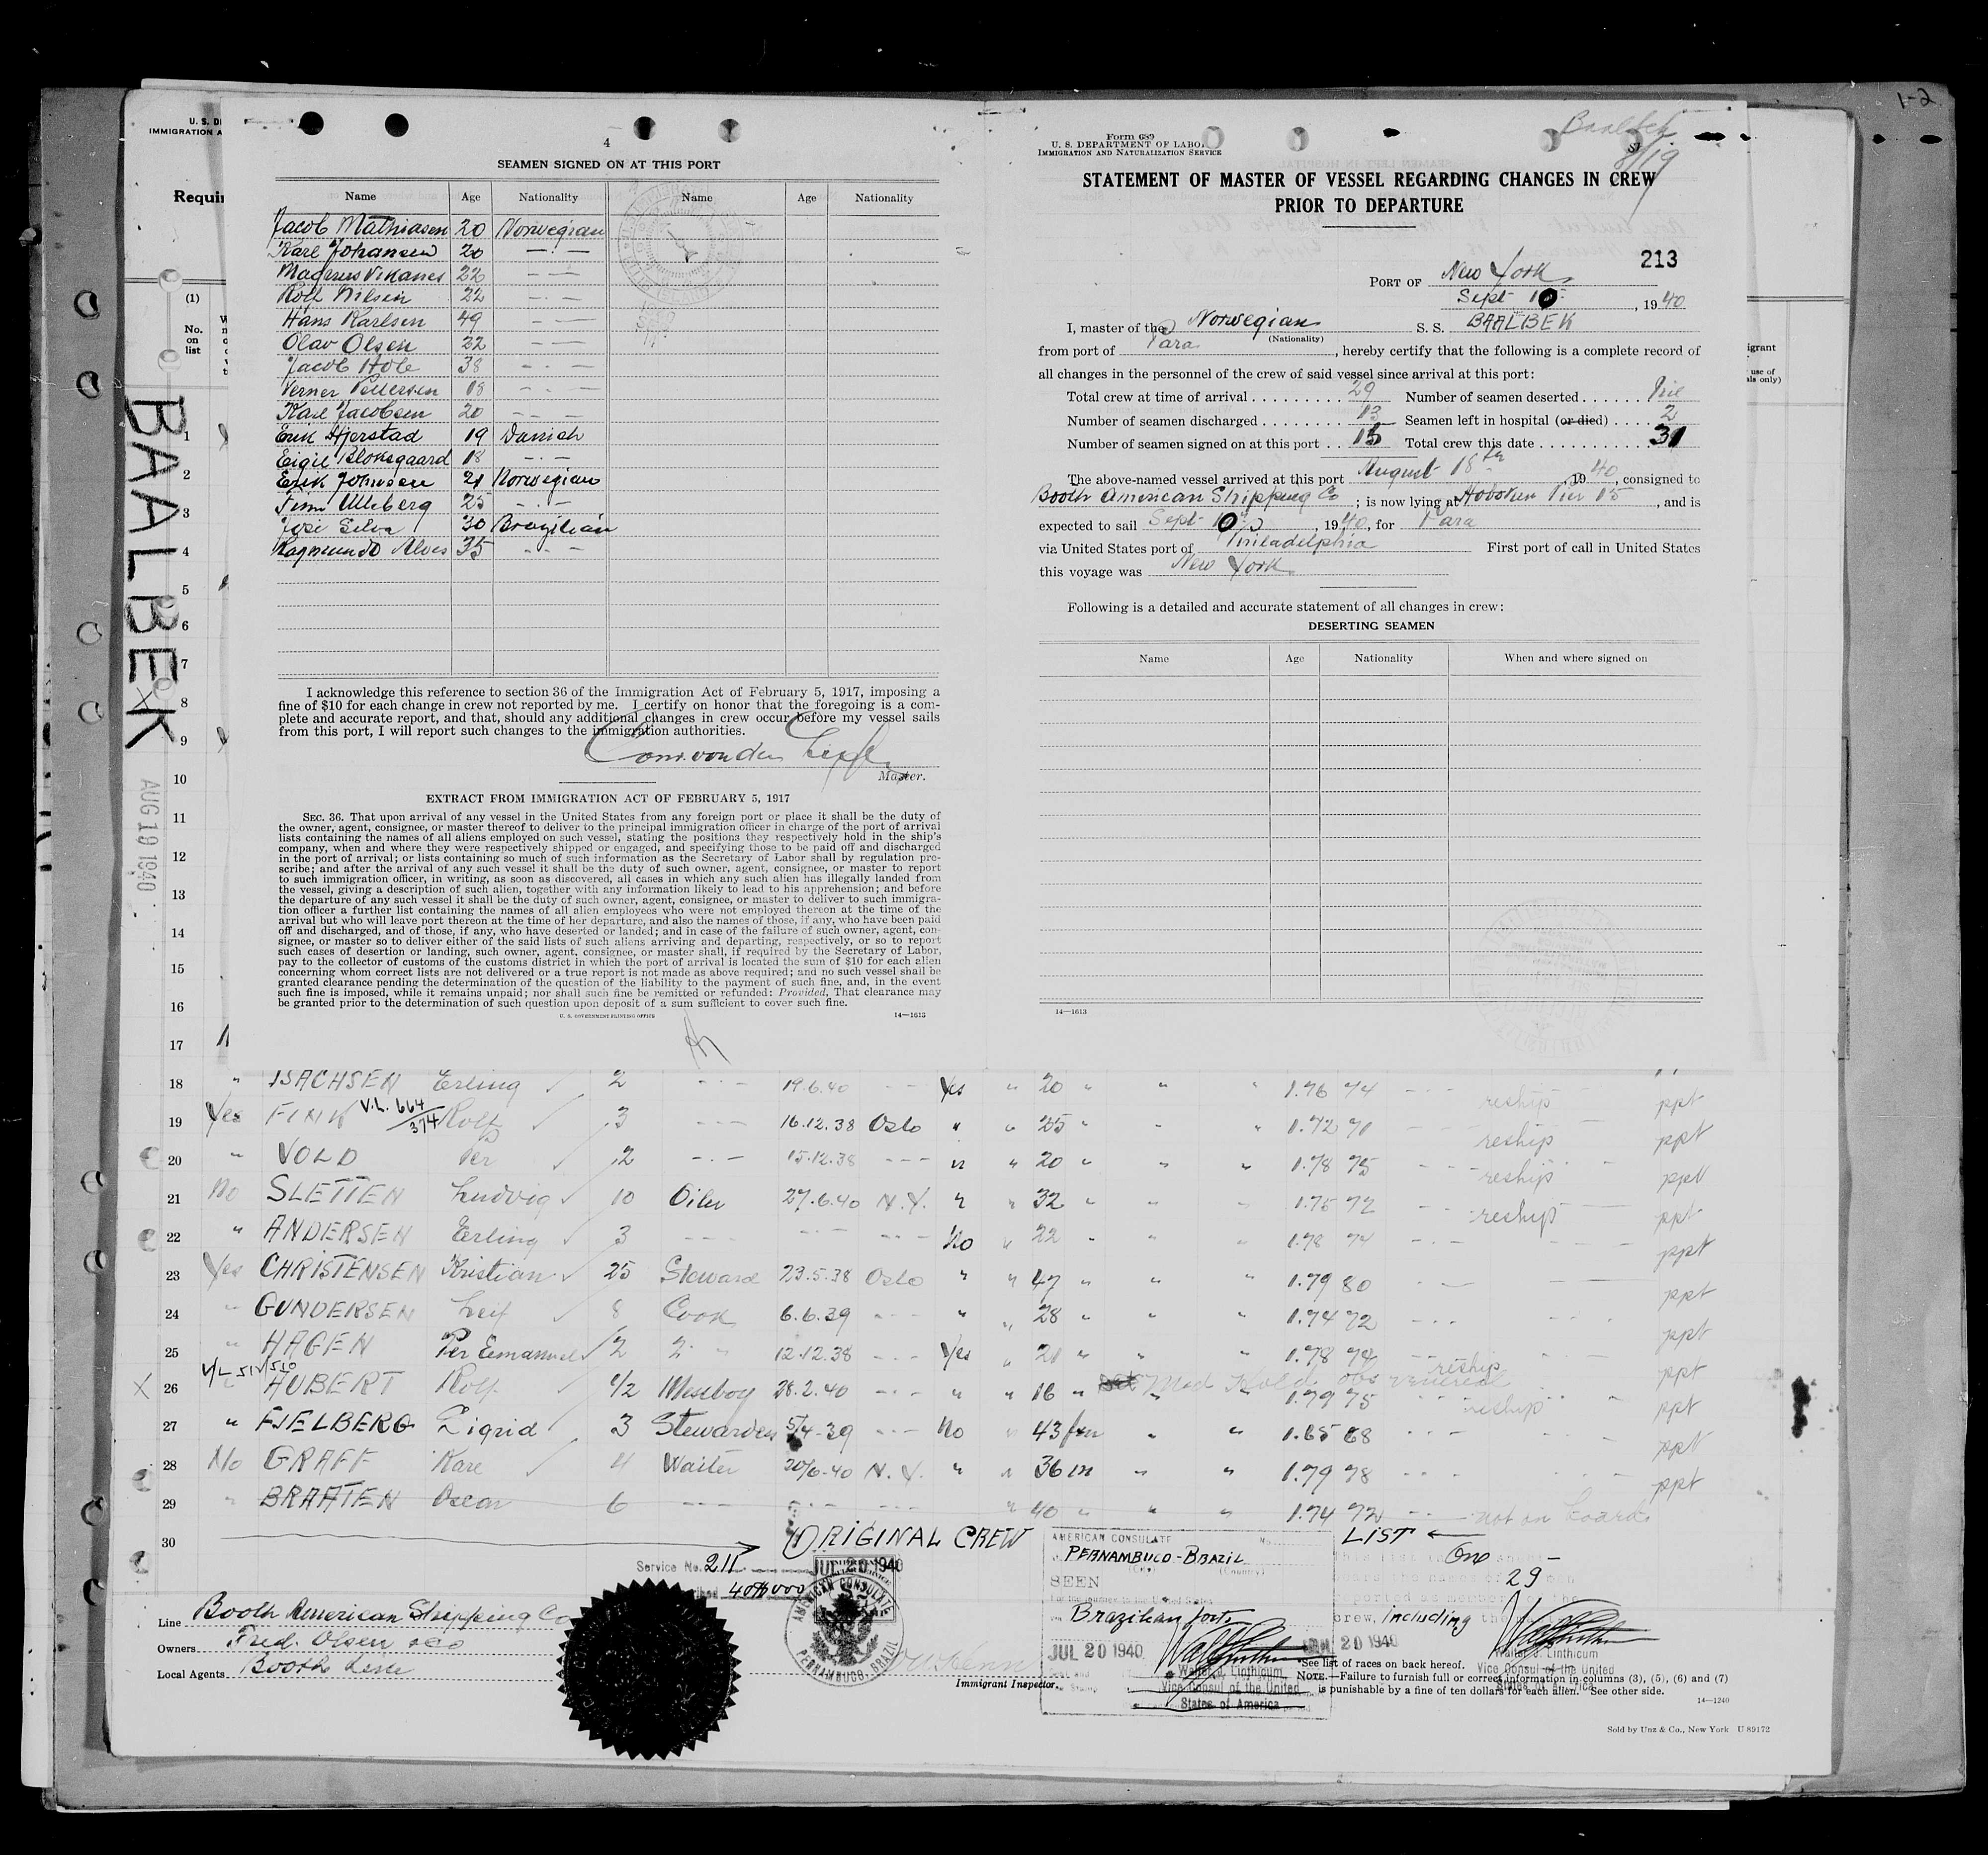 1-2
U. S. D
IMMIGRATION A
Requir
(1)
No.
on
list
BAALBEK
AUG 19 1940
4
SEAMEN SIGNED ON AT THIS PORT
Name Age Nationality Name Age Nationality
Jacob Mathiasen 20 Norwegian
Karl Johansen 20 — · —
Magnus Vikanes 22 — · —
Rolf Nilsen 22 — · —
Hans Karlsen 49 — · —
Olav Olsen 22 — · —
Jacob Hole 38 — · —
Verner Pettersen 18 — · —
Karl Jacobsen 20 — · —
Erik Hjerstad 19 Danish
Eigil Bloksgaard 18 — · —
Erik Johnsen 21 Norwegian
Finn Ulleberg 25 — · —
José Silva 30 Brazilian
Raymundo Alves 35 — · —
I acknowledge this reference to section 36 of the Immigration Act of February 5, 1917, imposing a
fine of $10 for each change in crew not reported by me. I certify on honor that the foregoing is a com-
plete and accurate report, and that, should any additional changes in crew occur before my vessel sails
from this port, I will report such changes to the immigration authorities.
Master.
EXTRACT FROM IMMIGRATION ACT OF FEBRUARY 5, 1917
SEC. 36. That upon arrival of any vessel in the United States from any foreign port or place it shall be the duty of
the owner, agent, consignee, or master thereof to deliver to the principal immigration officer in charge of the port of arrival
lists containing the names of all aliens employed on such vessel, stating the positions they respectively hold in the ship's
company, when and where they were respectively shipped or engaged, and specifying those to be paid off and discharged
in the port of arrival; or lists containing so much of such information as the Secretary of Labor shall by regulation pre-
scribe; and after the arrival of any such vessel it shall be the duty of such owner, agent, consignee, or master to report
to such immigration officer, in writing, as soon as discovered, all cases in which any such alien has illegally landed from
the vessel, giving a description of such alien, together with any information likely to lead to his apprehension; and before
the departure of any such vessel it shall be the duty of such owner, agent, consignee, or master to deliver to such immigra-
tion officer a further list containing the names of all alien employees who were not employed thereon at the time of the
arrival but who will leave port thereon at the time of her departure, and also the names of those, if any, who have been paid
off and discharged, and of those, if any, who have deserted or landed; and in case of the failure of such owner, agent, con-
signee, or master so to deliver either of the said lists of such aliens arriving and departing, respectively, or so to report
such cases of desertion or landing, such owner, agent, consignee, or master shall, if required by the Secretary of Labor,
pay to the collector of customs of the customs district in which the port of arrival is located the sum of $10 for each alien
concerning whom correct lists are not delivered or a true report is not made as above required; and no such vessel shall be
granted clearance pending the determination of the question of the liability to the payment of such fine, and, in the event
such fine is imposed, while it remains unpaid; nor shall such fine be remitted or refunded: Provided, That clearance may
be granted prior to the determination of such question upon deposit of a sum sufficient to cover such fine.
U. S. GOVERNMENT PRINTING OFFICE 14—1613
Baalbek
8/19
Form 689
U. S. DEPARTMENT OF LABOR
IMMIGRATION AND NATURALIZATION SERVICE
STATEMENT OF MASTER OF VESSEL REGARDING CHANGES IN CREW
PRIOR TO DEPARTURE
213
PORT OF New York
Sept 10, 1940
I, master of the Norwegian S. S. BAALBEK
(Nationality)
from port of Para, hereby certify that the following is a complete record of
all changes in the personnel of the crew of said vessel since arrival at this port:
Total crew at time of arrival 29 Number of seamen deserted Nil
Number of seamen discharged 13 Seamen left in hospital (or died) 2
Number of seamen signed on at this port 15 Total crew this date 31
The above-named vessel arrived at this port August 18th, 1940, consigned to
Booth American Shipping Co; is now lying at Hoboken Pier 15, and is
expected to sail Sept 10, 1940, for Para
via United States port of Philadelphia First port of call in United States
this voyage was New York
Following is a detailed and accurate statement of all changes in crew:
DESERTING SEAMEN
Name Age Nationality When and where signed on
14—1613
igrant
use of
als only)
1
2
3
4
5
6
7
8
9
10
11
12
13
14
15
16
17
18 " ISACHSEN Erling 2 - · - 19.6.40 - - Yes " 20 " " " 1.76 74 reship ppt
19 Yes FINK V.L. 664/374 Rolf 3 - - - 16.12.38 Oslo " " 25 " " " 1.72 71 reship ppt
20 " VOLD Per 2 - · - 15.12.38 - - - " " 20 " " " 1.78 75 reship ppt
21 No SLETTEN Ludvig 10 Oiler 27.6.40 N.Y. " " 32 " " " 1.75 72 reship ppt
22 " ANDERSEN Erling 3 - - - - - - - No " 22 " " " 1.78 74 ppt
23 Yes CHRISTENSEN Kristian 25 Steward 23.5.38 Oslo " " 47 " " " 1.79 80 ppt
24 " GUNDERSEN Leif 8 Cook 6.6.39 - - - " " 28 " " " 1.74 72 ppt
25 " HAGEN Per Emanuel 2 2. " 12.12.38 - - - Yes " 21 " " " 1.78 74 reship ppt
X 26 HUBERT Rolf 1/2 Messboy 28.2.40 - - - " " 16 " Med Hold. obs venereal 1.79 75 reship ppt
27 " FJELBERG Sigrid 3 Stewardess 5/4-39 - - - No " 43 fem " " 1.65 68 ppt
28 No GRAFF Kare 4 Waiter 20/6-40 N.Y. " " 36 m " " 1.79 78 ppt
29 " BRAATEN Oscar 6 - - - - · - - - - " 40 " " " 1.74 72 not on board
30 ORIGINAL CREW LIST ←
Service No. 211
40$000
JUL 20 1940
AMERICAN CONSULATE
PERNAMBUCO, BRAZIL
AMERICAN CONSULATE
PERNAMBUCO-BRAZIL
(City) (Country)
SEEN
Brazilian ports
JUL 20 1940
Walter J. Linthicum
Vice Consul of the United
States of America
One
29
crew, including the
JUL 20 1940
Walter J. Linthicum
Vice Consul of the United
States of America
Line Booth American Shipping Co
Owners Fred. Olsen & Co
Local Agents Booth Line
Immigrant Inspector.
See list of races on back hereof.
NOTE.—Failure to furnish full or correct information in columns (3), (5), (6) and (7)
is punishable by a fine of ten dollars for each alien. See other side.
14—1240
Sold by Unz & Co., New York U 89172